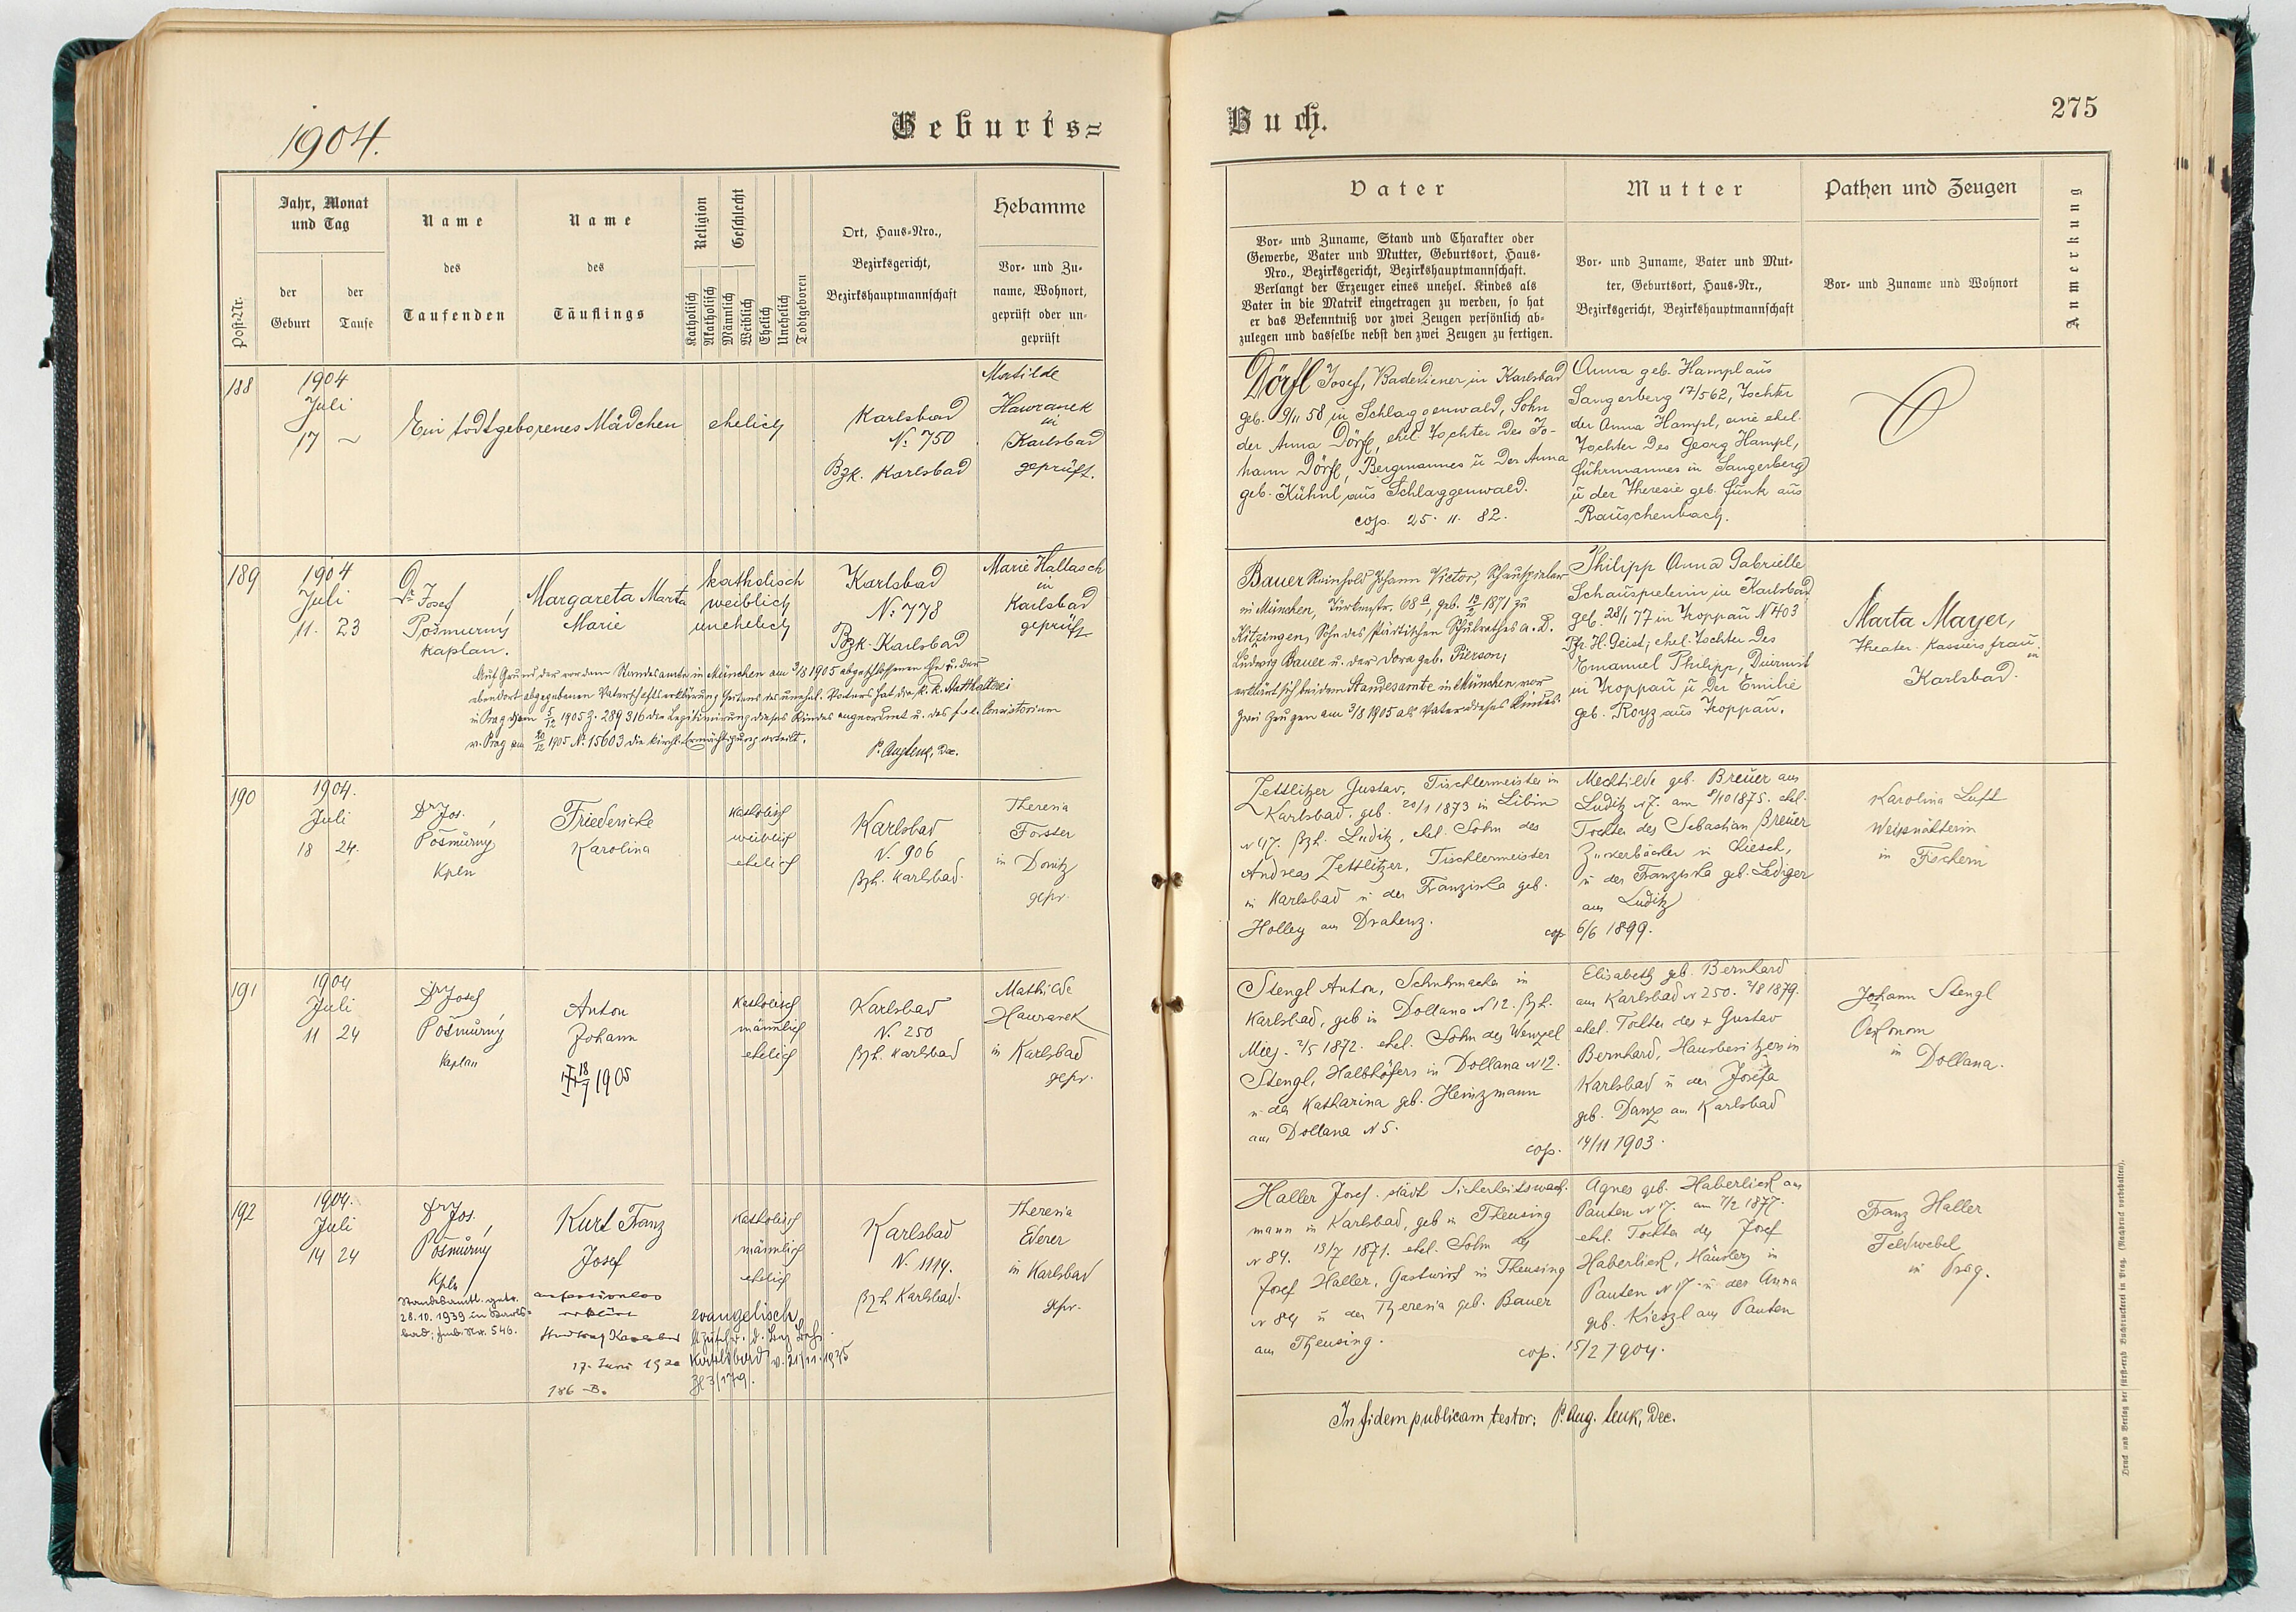 1904.
Geburts=
Post-Nr.
Jahr, Monat
und Tag
der
Geburt
der
Taufe
Name
des
Taufenden
Name
des
Täuflings
Religion
Katholisch
Akatholisch
Geschlecht
Männlich
Weiblich
Ehelich
Unehelich
Todtgeboren
Ort, Haus-Nro.,
Bezirksgericht,
Bezirkshauptmannschaft
Hebamme
Vor- und Zu-
name, Wohnort,
geprüft oder un-
geprüft
188
1904
Juli
17 ~
Ein todtgeborenes Mädchen
ehelich
Karlsbad
No 750
Bzk. Karlsbad
Matilde
Hawranek
in
Karlsbad
geprüft.
189
1904
Juli
11. 23
Dr. Josef
Pošmurný
Kaplan.
Margareta Marta
Marie
katholisch
weiblich
unehelich
Karlsbad
No 778
Bzk. Karlsbad
Marie Hallasch
in
Karlsbad
geprüft
Auf Grund der vor dem Standesamte in München am 3/8 1905 abgeschlossenen Ehe u. der
ebendort abgegebenen Vaterschaftserklärung seitens des unehel. Vaters hat die k. k. Statthalterei
in Prag dem 5/12 1905 Z. 289316 die Legitimirung dieses Kindes angeordnet u. das f. e. Consistorium
v. Prag am 20/12 1905 No 15603 die kirchl. Ermächtigung erteilt.
P. Aug. Leuk, Dec.
190
1904.
Juli
18 24.
Dr Jos.
Pošmurný
Kpln
Friedericke
Karolina
Katholisch
weiblich
ehelich
Karlsbad
N. 906
Bzh. Karlsbad.
Theresia
Forster
in Donitz
gepr.
191
1904
Juli
11 24
Dr Josef
Pošmurný
Kaplan
Anton
Johann
18/7 1905
Katholisch
männlich
ehelich
Karlsbad
N. 250
Bzh. Karlsbad
Mathilde
Hawranek
in Karlsbad
gepr.
192
1904.
Juli
14 24
Dr Jos.
Pošmurný
Kpln
Standesamtl. getr.
28.10.1939 in Karls-
bad; Fmb. Nr. 546.
Kurt Franz
Josef
konfessionslos
erklärt
17. Juni 1920
186 B.
Katholisch
männlich
ehelich
evangelisch
Karlsbad v. 21/11.1935
Zl 3/179.
Karlsbad
N. 1114.
Bzh Karlsbad.
Theresia
Ederer
in Karlsbad
gepr.
Buch.
275
Vater
Vor- und Zuname, Stand und Charakter oder
Gewerbe, Vater und Mutter, Geburtsort, Haus-
Nro., Bezirksgericht, Bezirkshauptmannschaft.
Verlangt der Erzeuger eines unehel. Kindes als
Vater in die Matrik eingetragen zu werden, so hat
er das Bekenntniß vor zwei Zeugen persönlich ab-
zulegen und dasselbe nebst den zwei Zeugen zu fertigen.
Mutter
Vor- und Zuname, Vater und Mut-
ter, Geburtsort, Haus-Nr.,
Bezirksgericht, Bezirkshauptmannschaft
Pathen und Zeugen
Vor- und Zuname und Wohnort
Anmerkung
Dörfl Josef, Badediener in Karlsbad
geb. 9/11 58 in Schlaggenwald, Sohn
der Anna Dörfl, ehel. Tochter des Jo-
hann Dörfl, Bergmannes ü der Anna
geb. Kühnl aus Schlaggenwald.
cop. 25. 11. 82.
Anna geb. Hampl aus
Sangerberg 17/5 62, Tochter
der Anna Hampl, eine ehel.
Tochter des Georg Hampl,
Fuhrmannes in Sangerberg
ü der Theresie geb. Funk aus
Rauschenbach.
Bauer Reinhold Johann Victor, Schauspieler
in München, Türkenstr. 68 a, geb. 19/2 1871 zu
Kitzingen, Sohn des städtischen Schulrathes a. D.
Ludwig Bauer u. der Dora geb. Pierson,
erklärt sich bei dem Standesamte in München vor
zwei Zeugen am 3/8 1905 als Vater dieses Kindes.
Philipp Anna Gabrielle
Schauspielerin in Karlsbad
geb. 28/1 77 in Troppau N 403
Pfr. H. Geist; ehel. Tochter des
Emanuel Philipp, Diurnist
in Troppau ü der Emilie
geb. Royz aus Troppau.
Marta Mayer,
Theater-Kassiersfrau
in
Karlsbad.
Zettlitzer Gustav, Tischlermeister in
Karlsbad, geb. 20/1 1873 in Libin
N 47. Bzh. Luditz, ehel. Sohn des
Andreas Zettlitzer, Tischlermeister
in Karlsbad u der Franziska geb.
Holley aus Drahenz.
cop
Mechtilde geb. Breuer aus
Luditz N 7. am 8/10 1875. ehel.
Tochter des Sebastian Breuer
Zuckerbäcker in Chiesch,
u der Franziska geb. Lediger
aus Luditz
6/6 1899.
Karolina Luft
Weissnähterin
in Fischern
Stengl Anton, Schuhmacher in
Karlsbad, geb in Dollana N 12. Bzh.
Mies. 2/5 1872. ehel. Sohn des Wenzel
Stengl, Halbhöfers in Dollana N 12.
u. der Katharina geb. Heinzmann
aus Dollana N 5.
cop.
Elisabeth geb. Bernhard
aus Karlsbad N 250. 2/8 1879.
ehel. Tochter des + Gustav
Bernhard, Hausbesitzers in
Karlsbad u der Josefa
geb. Danz aus Karlsbad
14/11 1903.
Johann Stengl
Oekonom
in Dollana.
Haller Josef. städt Sicherheitswach-
mann in Karlsbad, geb in Theusing
N 84. 13/7 1871. ehel. Sohn des
Josef Haller, Gastwirt in Theusing
N 84 u der Theresia geb. Bauer
aus Theusing.
cop.
Agnes geb. Haberlierl aus
Pauten N 17. am 7/2 1877.
ehel. Tochter des Josef
Haberlierl, Häuslers in
Pauten N 17 u der Anna
geb. Kieszl aus Pauten
15/2 1904.
Franz Haller
Feldwebel
in Prag.
In fidem publicam testor: P. Aug. Leuk, Dec.
Druck und Verlag der fürst-erzb. Buchdruckerei in Prag. (Nachdruck vorbehalten).